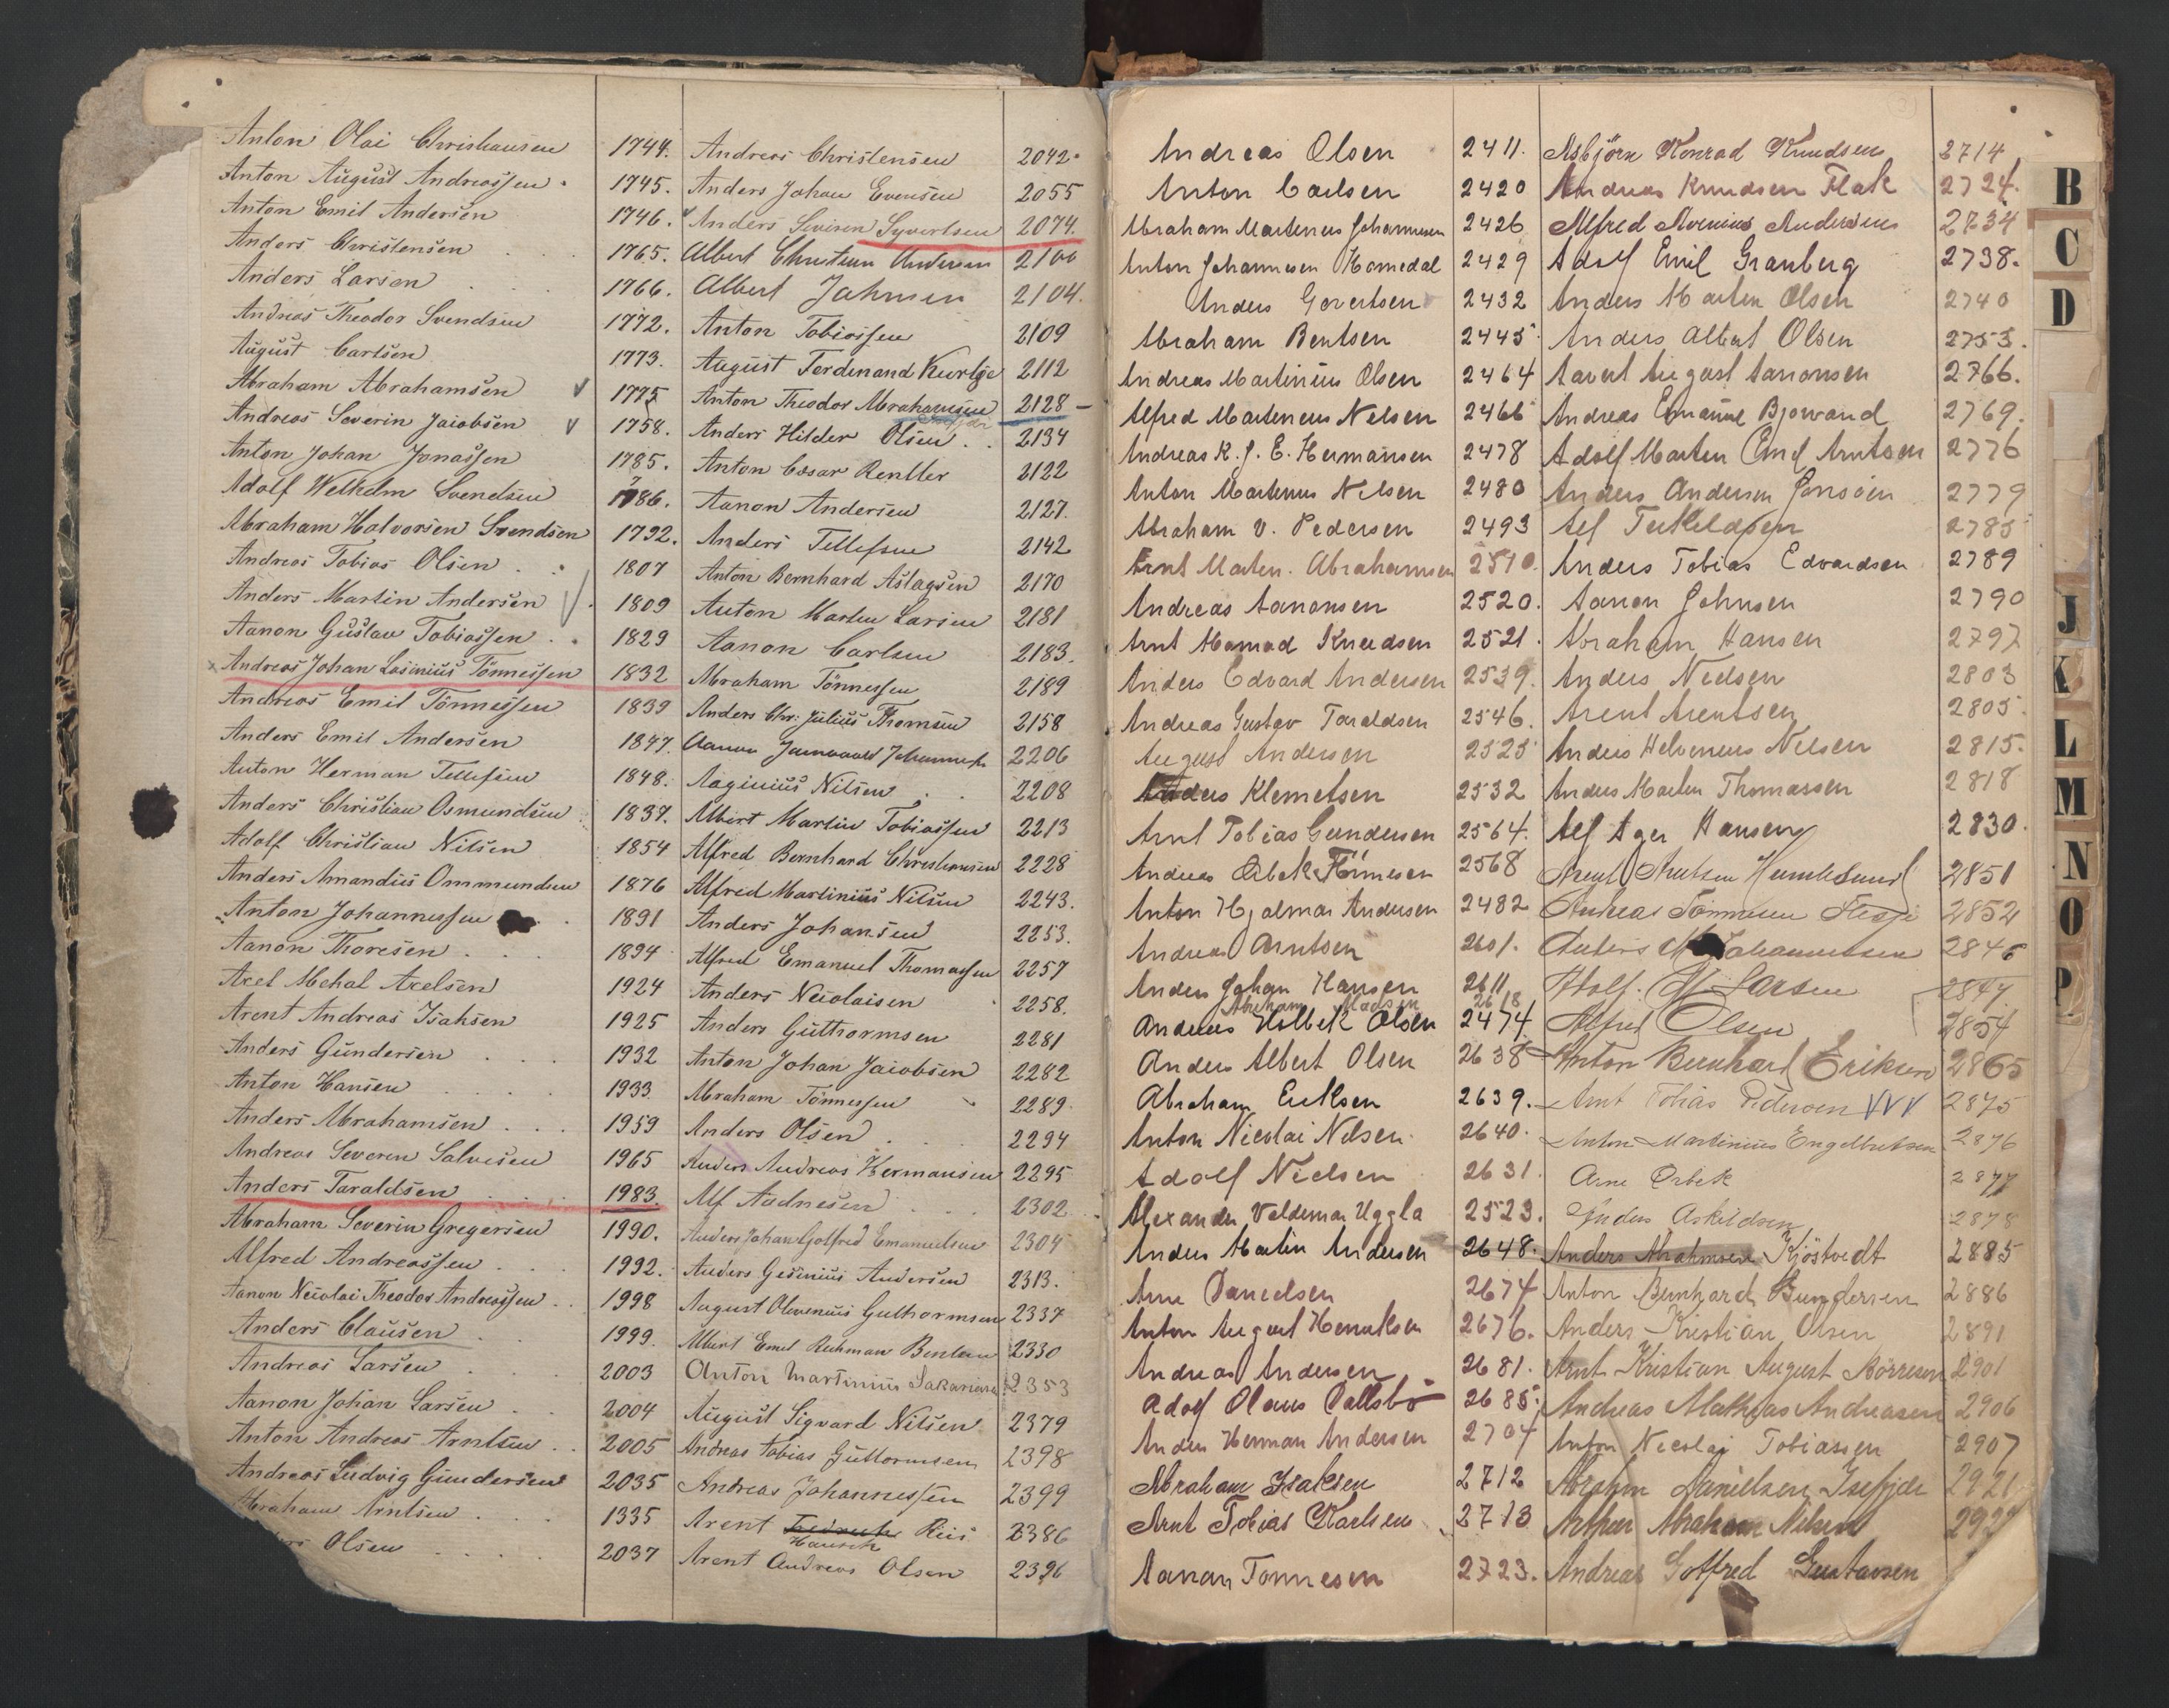 Anton Olai Christiansen 1744.
Anton August Andreassen 1745.
Anton Emil Andersen 1746.
Anders Christensen 1765.
Anders Larsen 1766.
Andreas Theodor Svendsen 1772.
August Carlsen 1773.
Abraham Abrahamsen 1775
Andreas Severin Jacobsen 1758.
Anton Johan Jonassen 1785.
Adolf Welhelm Svendsen 1786.
Abraham Halvorsen Svendsen 1792.
Andreas Tobias Olsen 1807
Anders Martin Andersen 1809
Aanon Gustav Tobiassen 1829
Andreas Johan Lasinius Tönnessen 1832
Andreas Emil Tönnessen 1839
Anders Emil Andersen 1847.
Anton Herman Tellefsen 1848.
Anders Christian Osmundsen 1837.
Adolf Christian Nilsen 1854
Anders Amandus Ommundsen 1876
Anton Johannessen 1891
Aanon Thoresen 1894
Axel Mehal Axelsen 1924
Arent Andreas Isaksen 1925
Anders Gundersen 1932
Anton Hansen 1933
Anders Abrahamsen 1959
Andreas Severen Salvesen 1965
Anders Taraldsen 1983.
Abraham Severin Gregersen 1990.
Alfred Andreassen 1992.
Aanon Nicolai Theodor Andreassen 1998
Anders Clausen 1999.
Andreas Larsen 2003
Aanon Johan Larsen 2004
Anton Andreas Arntsen 2005
Andreas Ludvig Gundersen 2035
Abraham Arntsen 1335
Olsen 2037
Andreas Christensen 2042.
Anders Johan Evensen 2055
Anders Severen Syvertsen 2074.
Albert Christian Andersen 2100
Albert Jahnsen 2104.
Anton Tobiassen 2109
August Ferdenand Kurtze 2112
Anton Theodor Abrahamsen 2128
Anders Hilder Olsen 2134
Anton Cæsar Rentler 2122
Aanon Andersen 2127.
Anders Tellefsen 2142
Anton Bernhard Aslagsen 2170
Anton Martin Larsen 2181
Aanon Carlsen 2183.
Abraham Tönnessen 2189
Anders Chr: Julius Thomsen 2158
Aanon 2206
Aaginius Nilsen 2208
Albert Martin Tobiassen 2213
Alfred Bernhard Christiansen 2228
Alfred Martinius Nilsen 2243.
Anders Johansen 2253.
Alfred Emanuel Thomassen 2257
Anders Nicolaisen 2258.
Anders Guthormsen 2281
Anton Johan Jacobsen 2282
Abraham Tönnessen 2289.
Anders Olsen 2294
Anders Andreas Hermansen 2295
Alf Aadnesen 2302
Anders Johan Gotfred Emanuelsen 2304
Anders Gesinius Andersen 2313.
August Olevenius Guthormsen 2337
Albert Emil Rehman Bentsen 2330
Anton Martinius Sakariasen 2353
August Sigvard Nilsen 2379
Andreas Tobias Guttormsen 2398
Andreas Johannessen 2399
Arent Hansek Riis 2386
Arent Andreas Olsen 2396
Andreas Olsen 2411.
Anton Carlsen 2420
Abraham Martenius Johannesen 2426
Anton Johannesen Homedal 2429
Anders Gevertsen 2432
Abraham Bentsen 2445
Andreas Martinius Olsen 2464
Alfred Martenius Nelsen 2466
Andreas K. J. E. Hermansen 2478
Anton Martenus Nelsen 2480
Abraham V. Pedersen 2493
Arnt Marten. Abrahamsen 2510.
Andreas Aanonsen 2520.
Arnt Konrad Knudsen 2521.
Anders Edvard Andersen 2539.
Andreas Gustav Taraldsen 2546.
August Andersen 2525
Anders Klemetsen 2532
Arnt Tobias Gundersen 2564.
Andreas Ørbek Tönnesen 2568
Anton Hjalmar Andersen 2482
Andreas Arntsen 2601.
Anders Johan Hansen 2611
Abraham Madsen 2618
Andreas Holbek Olsen 2474
Anders Albert Olsen 2638
Abraham Eriksen 2639.
Anton Nicolai Nelsen 2640.
Adolf Nielsen 2631.
Alexander Valdemar Uggla 2523.
Anders Martin Andersen 2648.
Arne Danielsen 2674
Anton August Henriksen 2676.
Andreas Andersen 2681.
Adolf Olaus Dallsbö 2685.
Anders Herman Andersen 2704
Abraham Isaksen 2712
Arnt Tobias Karlsen 2713
Aanan Tönnesen 2723.
Asbjörn Konrad Knudsen 2714
Andreas Knudsen Flak 2724.
Alfred Avenius Andersen 2734
Adolf Emil Granberg 2738.
Anders Marten Olsen 2740
Anders Albert Olsen 2753.
Aavut August Aanonsen 2766.
Andreas Emanuel Bjorvand 2769.
Adolf Marten Emil Arntsen 2776
Anders Andersen Jonsåen 2779
Alf Terkeldsen 2785
Anders Tobias Edvardsen 2789
Aanon Johnsen 2790
Abraham Hansen 2797
Anders Nielsen 2803
Arent Arentsen 2805.
Anders Helvenius Nelsen 2815.
Anders Marten Thomassen 2818
Alf Ager Hansen 2830.
Arent Arntsen Humlesund 2851
Andreas Tönnesen 2852
Anders M Johannessen 2846
Adolf. M. Larsen 2847.
Alfred Olsen 2854
Anton Bernhart Eriksen 2865
Arnt Tobias Pedersen 2875
Anton Martinius Engelbretsen 2876
Arne Ørbek 2877
Anders Askildsen 2878
Anders Abrahamsen Kjöstvedt 2885
Anton Bernhard Gundersen 2886
Anders Kristian Olsen 2891
Arnt Kristian August Börresen 2901
Andreas Mathias Andreasen 2906
Anton Nicolai Tobiassen 2907
Abrahm Danielsen Isefjær 2921
Arthur Abraham Nilsen
Andreas Gotfred Gustavsen
B
C
D
J
K
L
M
N
O
P